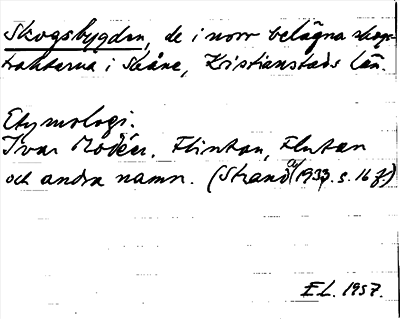 Skogsbygden, de i norr belägna skogs-
trakterna i Skåne, Kristianstads län.
Etymologi.
Ivar Modéer, Flintan, Flutan
och andra namn. (Strand 1933. s. 16 f)
E.L. 1957.